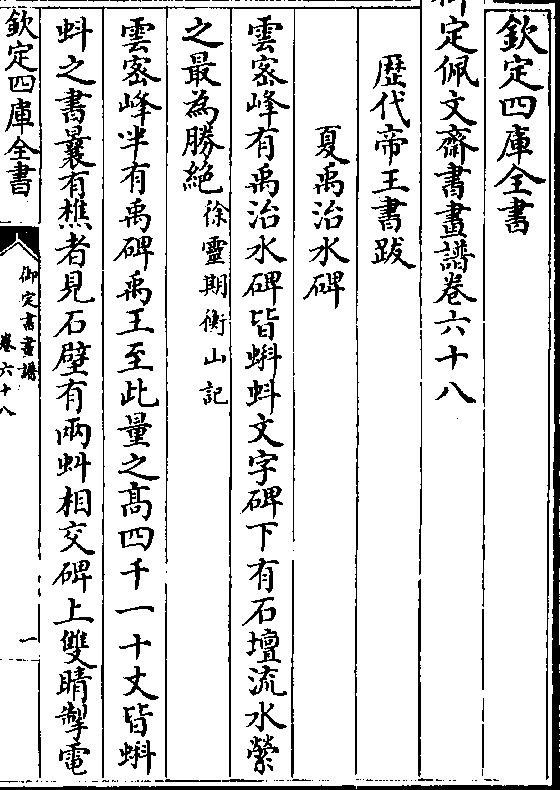 欽定四庫全書
御定佩文齋書畫譜卷六十八
歷代帝王書跋
夏禹治水碑
雲密峰有禹治水碑皆蝌蚪文字碑下有石壇流水縈
之最為勝絶徐靈期衡山記
雲密峰半有禹碑禹王至此量之髙四千一十丈皆蝌
蚪之書曩有樵者見石壁有兩蚪相交碑上雙睛掣電
欽定四庫全書
御定書畫譜
卷六十八
一